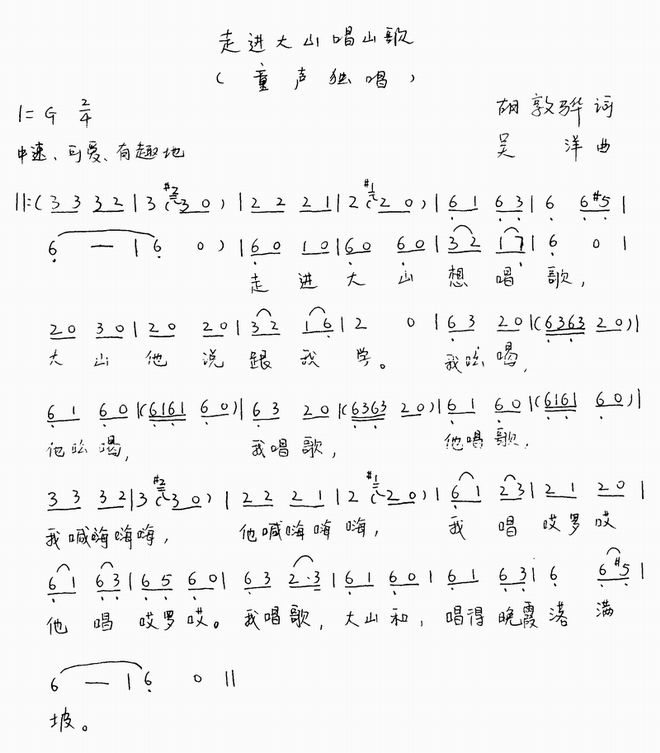 走进大山唱山歌
（童声独唱）
1=G 2/4
胡敦骅 词
中速、可爱、有趣地
吴 洋 曲
‖:( 3 3 3 2 | 3 (#2 3 0 ) | 2 2 2 1 | 2 (#1 2 0 ) | 6 1 6 3 | 6 6 #5 |
6 — | 6 0 ) | 6 0 1 0 | 6 0 6 0 | 3 2 1 7 | 6 0 |
走 进 大 山 想 唱 歌，
2 0 3 0 | 2 0 2 0 | 3 2 1 6 | 2 0 | 6 3 2 0 | ( 6363 2 0 ) |
大 山 他 说 跟 我 学。 我吆喝，
6 1 6 0 | ( 6161 6 0 ) | 6 3 2 0 | ( 6363 2 0 ) | 6 1 6 0 | ( 6161 6 0 ) |
他吆喝， 我唱歌， 他唱歌，
3 3 3 2 | 3 (#2 3 0 ) | 2 2 2 1 | 2 (#1 2 0 ) | 6 1 2 3 | 2 1 2 0 |
我喊嗨嗨嗨， 他喊嗨嗨嗨， 我 唱 哎罗哎
6 1 6 3 | 6 5 6 0 | 6 3 2·3 | 6 1 6 0 | 6 1 6 3 | 6 6 #5 |
他 唱 哎罗哎。我唱歌，大山和，唱得晚霞落 满
6 — | 6 0 ‖
坡。